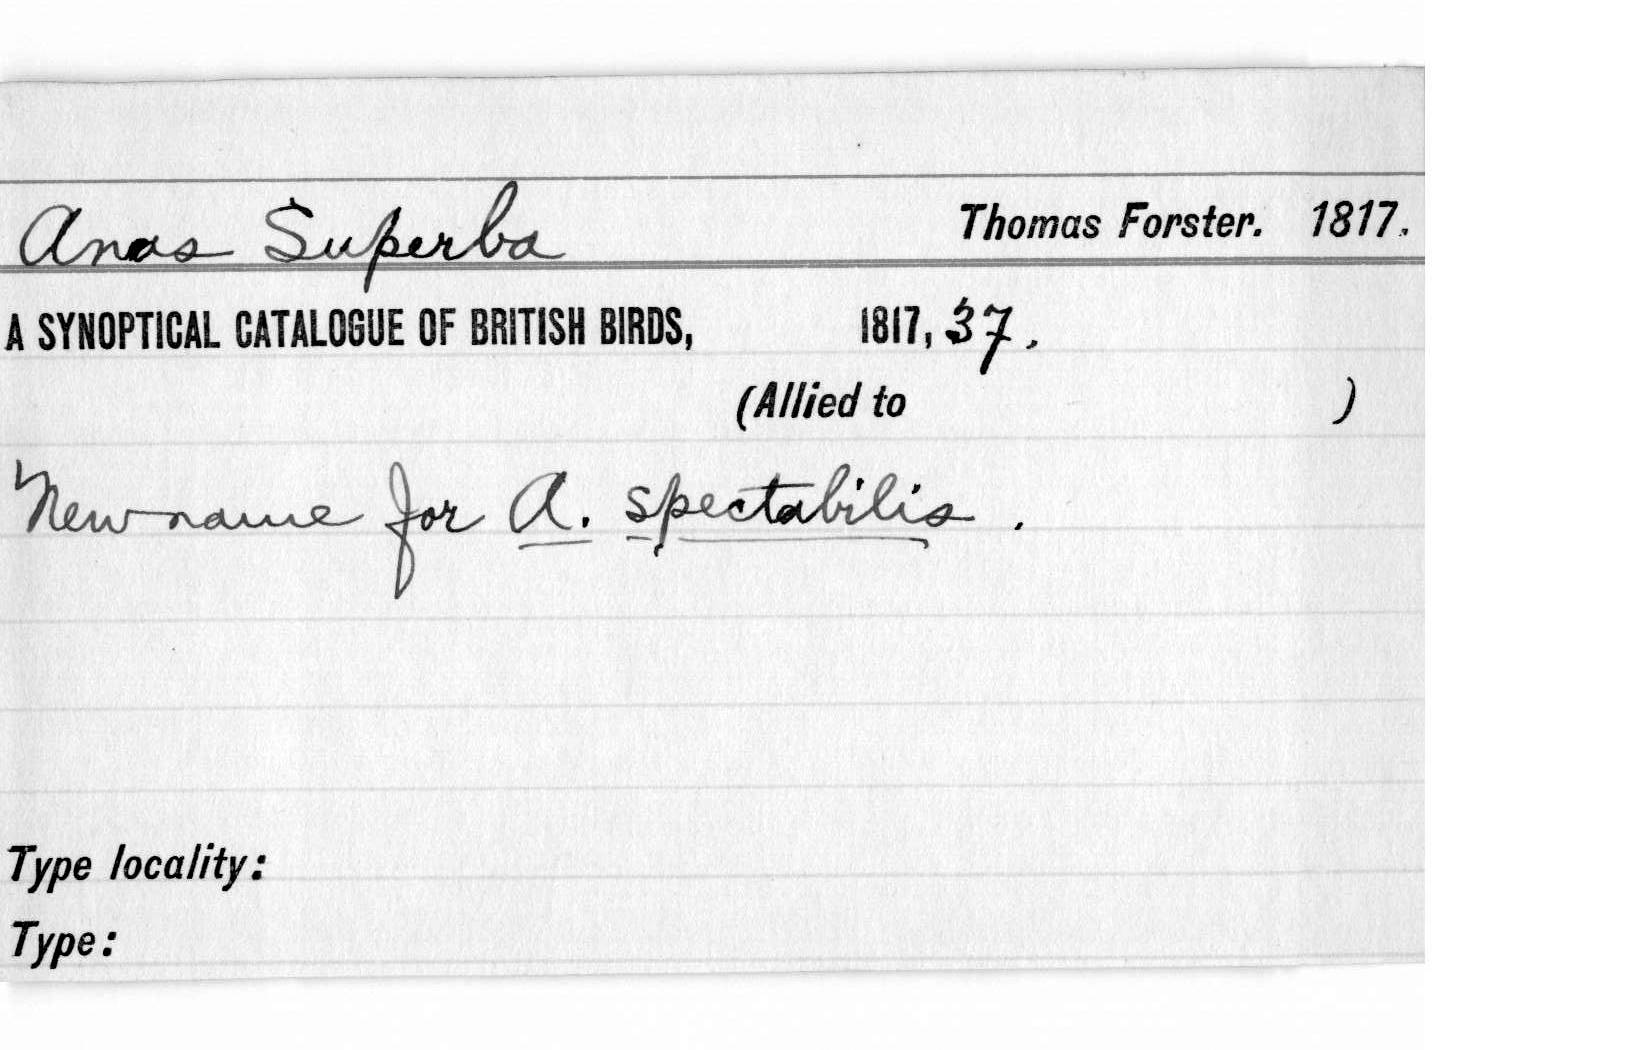 Anas Superba Thomas Forster. 1817.
A SYNOPTICAL CATALOGUE OF BRITISH BIRDS, 1817, 37.
(Allied to )
New name for A. spectabilis.
Type locality:
Type: